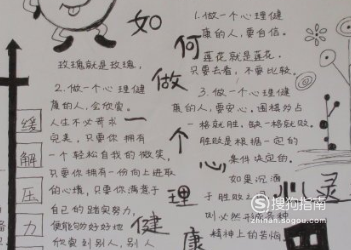 如何做个心理健康
心灵
缓解压力
玫瑰就是玫瑰,
2.做一个心理健
康的人,会欣赏。
人生不必苛求一
完美,只要你拥有
一个轻松自我的微笑,
只要我拥有一份向上进取
的心境,只要你满意于
自己的踏实努力,
便能够好好地
欣赏到别人,别人
1.做一个心理健
康的人,要自信。
莲花就是莲花,
只要去看,不要比较。
3.做一个心理健
康的人,要安心。围棋分占
一格就胜,缺一格就败。
胜败是根据一定的
条件决定的,
如果沉湎
于胜败
则必然
精神上的苦恼
搜狗指南